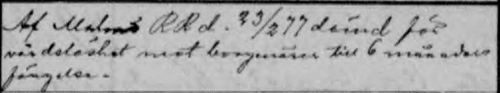 Af Malmö RRd. 23/2 77 dömd för
vårdslöshet mot borgenärer till 6 månaders
fängelse.